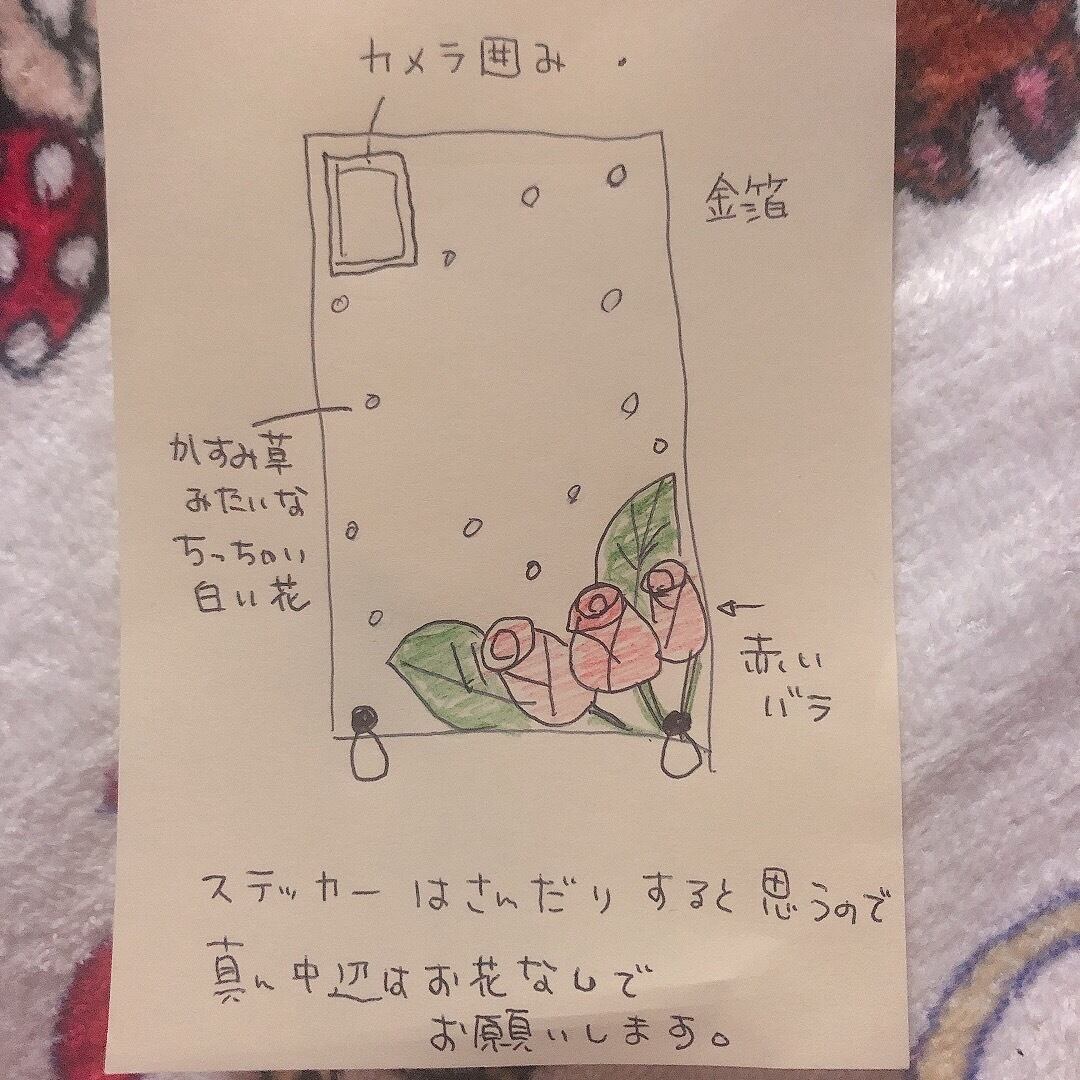 カメラ囲み
金箔
かすみ草
みたいな
ちっちゃい
白い花
赤い
バラ
ステッカーはさんだりすると思うので
真ん中辺はお花なしで
お願いします。